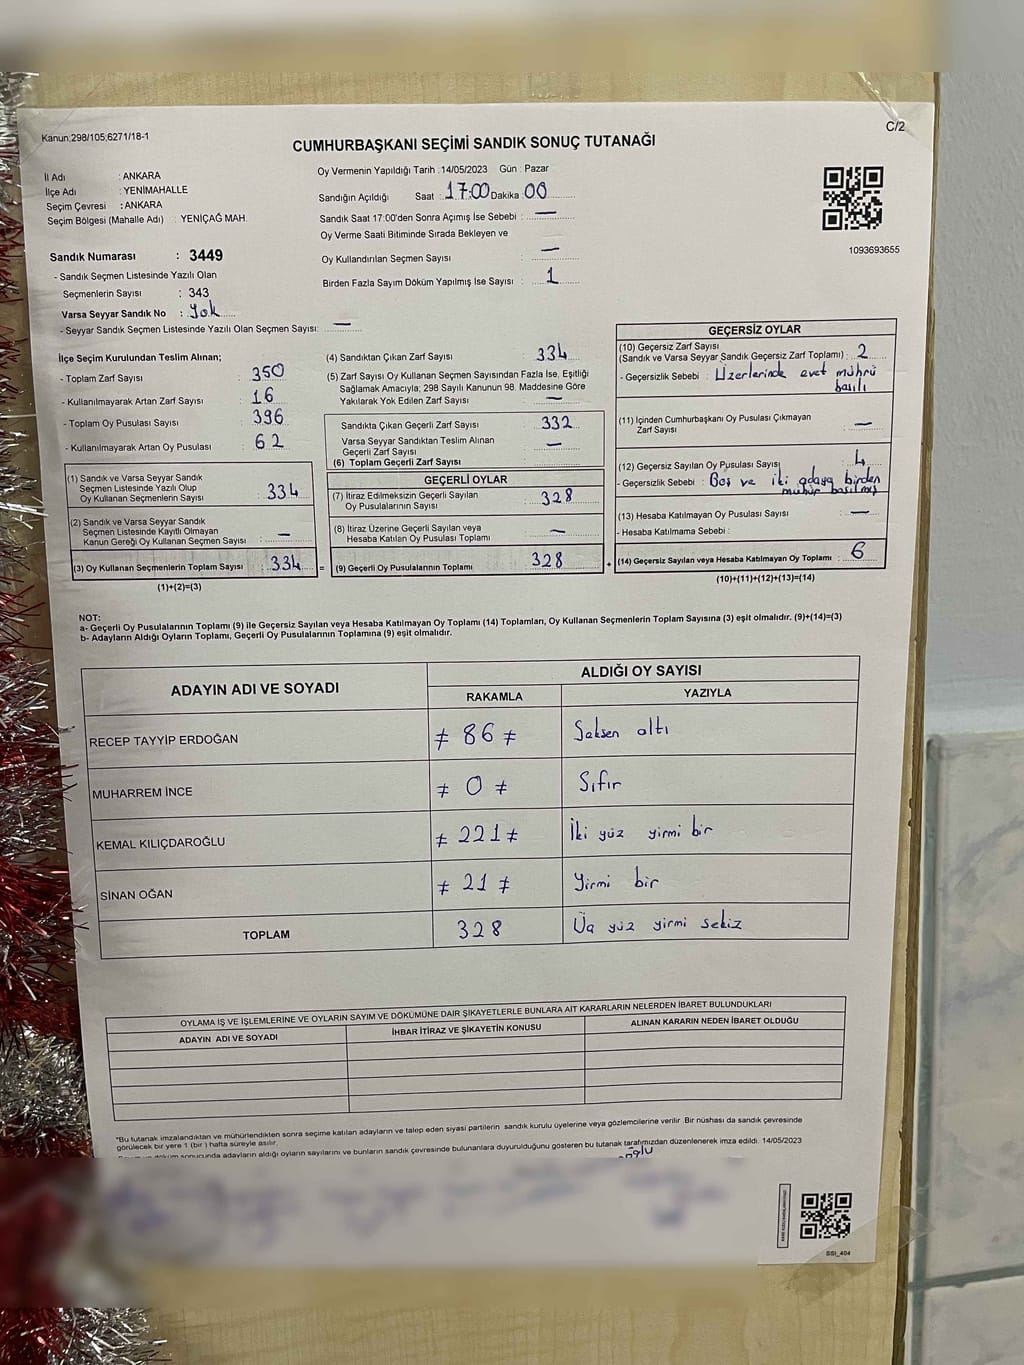 Kanun:298/105,6271/18-1
C/2
CUMHURBAŞKANI SEÇİMİ SANDIK SONUÇ TUTANAĞI
İl Adı : ANKARA
İlçe Adı : YENİMAHALLE
Seçim Çevresi : ANKARA
Seçim Bölgesi (Mahalle Adı) : YENİÇAĞ MAH.
Oy Vermenin Yapıldığı Tarih :14/05/2023 Gün : Pazar
Sandığın Açıldığı Saat : 17:00 Dakika 00
Sandık Saat 17:00'den Sonra Açımış İse Sebebi : —
Oy Verme Saati Bitiminde Sırada Bekleyen ve
Oy Kullandırılan Seçmen Sayısı : —
Birden Fazla Sayım Döküm Yapılmış İse Sayısı : 1
1093693655
Sandık Numarası : 3449
- Sandık Seçmen Listesinde Yazılı Olan
Seçmenlerin Sayısı : 343
Varsa Seyyar Sandık No : Yok
- Seyyar Sandık Seçmen Listesinde Yazılı Olan Seçmen Sayısı: —
İlçe Seçim Kurulundan Teslim Alınan;
- Toplam Zarf Sayısı : 350
- Kullanılmayarak Artan Zarf Sayısı : 16
- Toplam Oy Pusulası Sayısı : 396
- Kullanılmayarak Artan Oy Pusulası : 62
(1) Sandık ve Varsa Seyyar Sandık
Seçmen Listesinde Yazılı Olup
Oy Kullanan Seçmenlerin Sayısı : 334
(2) Sandık ve Varsa Seyyar Sandık
Seçmen Listesinde Kayıtlı Olmayan
Kanun Gereği Oy Kullanan Seçmen Sayısı : —
(3) Oy Kullanan Seçmenlerin Toplam Sayısı : 334 =
(1)+(2)=(3)
(4) Sandıktan Çıkan Zarf Sayısı : 334
(5) Zarf Sayısı Oy Kullanan Seçmen Sayısından Fazla İse, Eşitliği
Sağlamak Amacıyla; 298 Sayılı Kanunun 98. Maddesine Göre
Yakılarak Yok Edilen Zarf Sayısı : —
Sandıkta Çıkan Geçerli Zarf Sayısı : 332
Varsa Seyyar Sandıktan Teslim Alınan
Geçerli Zarf Sayısı : —
(6) Toplam Geçerli Zarf Sayısı :
GEÇERLİ OYLAR
(7) İtiraz Edilmeksizin Geçerli Sayılan
Oy Pusulalarının Sayısı : 328
(8) İtiraz Üzerine Geçerli Sayılan veya
Hesaba Katılan Oy Pusulası Toplamı : —
(9) Geçerli Oy Pusulalarının Toplamı : 328 +
GEÇERSİZ OYLAR
(10) Geçersiz Zarf Sayısı
(Sandık ve Varsa Seyyar Sandık Geçersiz Zarf Toplamı) : 2
- Geçersizlik Sebebi : Üzerlerinde evet mührü
basılı
(11) İçinden Cumhurbaşkanı Oy Pusulası Çıkmayan
Zarf Sayısı : —
(12) Geçersiz Sayılan Oy Pusulası Sayısı : 4
- Geçersizlik Sebebi : Boş ve iki adaya birden
mühür basılmış
(13) Hesaba Katılmayan Oy Pusulası Sayısı : —
- Hesaba Katılmama Sebebi :
(14) Geçersiz Sayılan veya Hesaba Katılmayan Oy Toplamı : 6
(10)+(11)+(12)+(13)=(14)
NOT:
a- Geçerli Oy Pusulalarının Toplamı (9) ile Geçersiz Sayılan veya Hesaba Katılmayan Oy Toplamı (14) Toplamları, Oy Kullanan Seçmenlerin Toplam Sayısına (3) eşit olmalıdır. (9)+(14)=(3)
b- Adayların Aldığı Oyların Toplamı, Geçerli Oy Pusulalarının Toplamına (9) eşit olmalıdır.
ADAYIN ADI VE SOYADI
ALDIĞI OY SAYISI
RAKAMLA YAZIYLA
RECEP TAYYİP ERDOĞAN ≠ 86 ≠ Seksen altı
MUHARREM İNCE ≠ 0 ≠ Sıfır
KEMAL KILIÇDAROĞLU ≠ 221 ≠ İki yüz yirmi bir
SİNAN OĞAN ≠ 21 ≠ Yirmi bir
TOPLAM 328 Üç yüz yirmi sekiz
OYLAMA İŞ VE İŞLEMLERİNE VE OYLARIN SAYIM VE DÖKÜMÜNE DAİR ŞİKAYETLERLE BUNLARA AİT KARARLARIN NELERDEN İBARET BULUNDUKLARI
ADAYIN ADI VE SOYADI İHBAR İTİRAZ VE ŞİKAYETİN KONUSU ALINAN KARARIN NEDEN İBARET OLDUĞU
*Bu tutanak imzalandıktan ve mühürlendikten sonra seçime katılan adayların ve talep eden siyasi partilerin sandık kurulu üyelerine veya gözlemcilerine verilir. Bir nüshası da sandık çevresinde
görülecek bir yere 1 (bir ) hafta süreyle asılır.
sonucunda adayların aldığı oyların sayılarını ve bunların sandık çevresinde bulunanlara duyurulduğunu gösteren bu tutanak tarafımızdan düzenlenerek imza edildi. 14/05/2023
SSİ_404